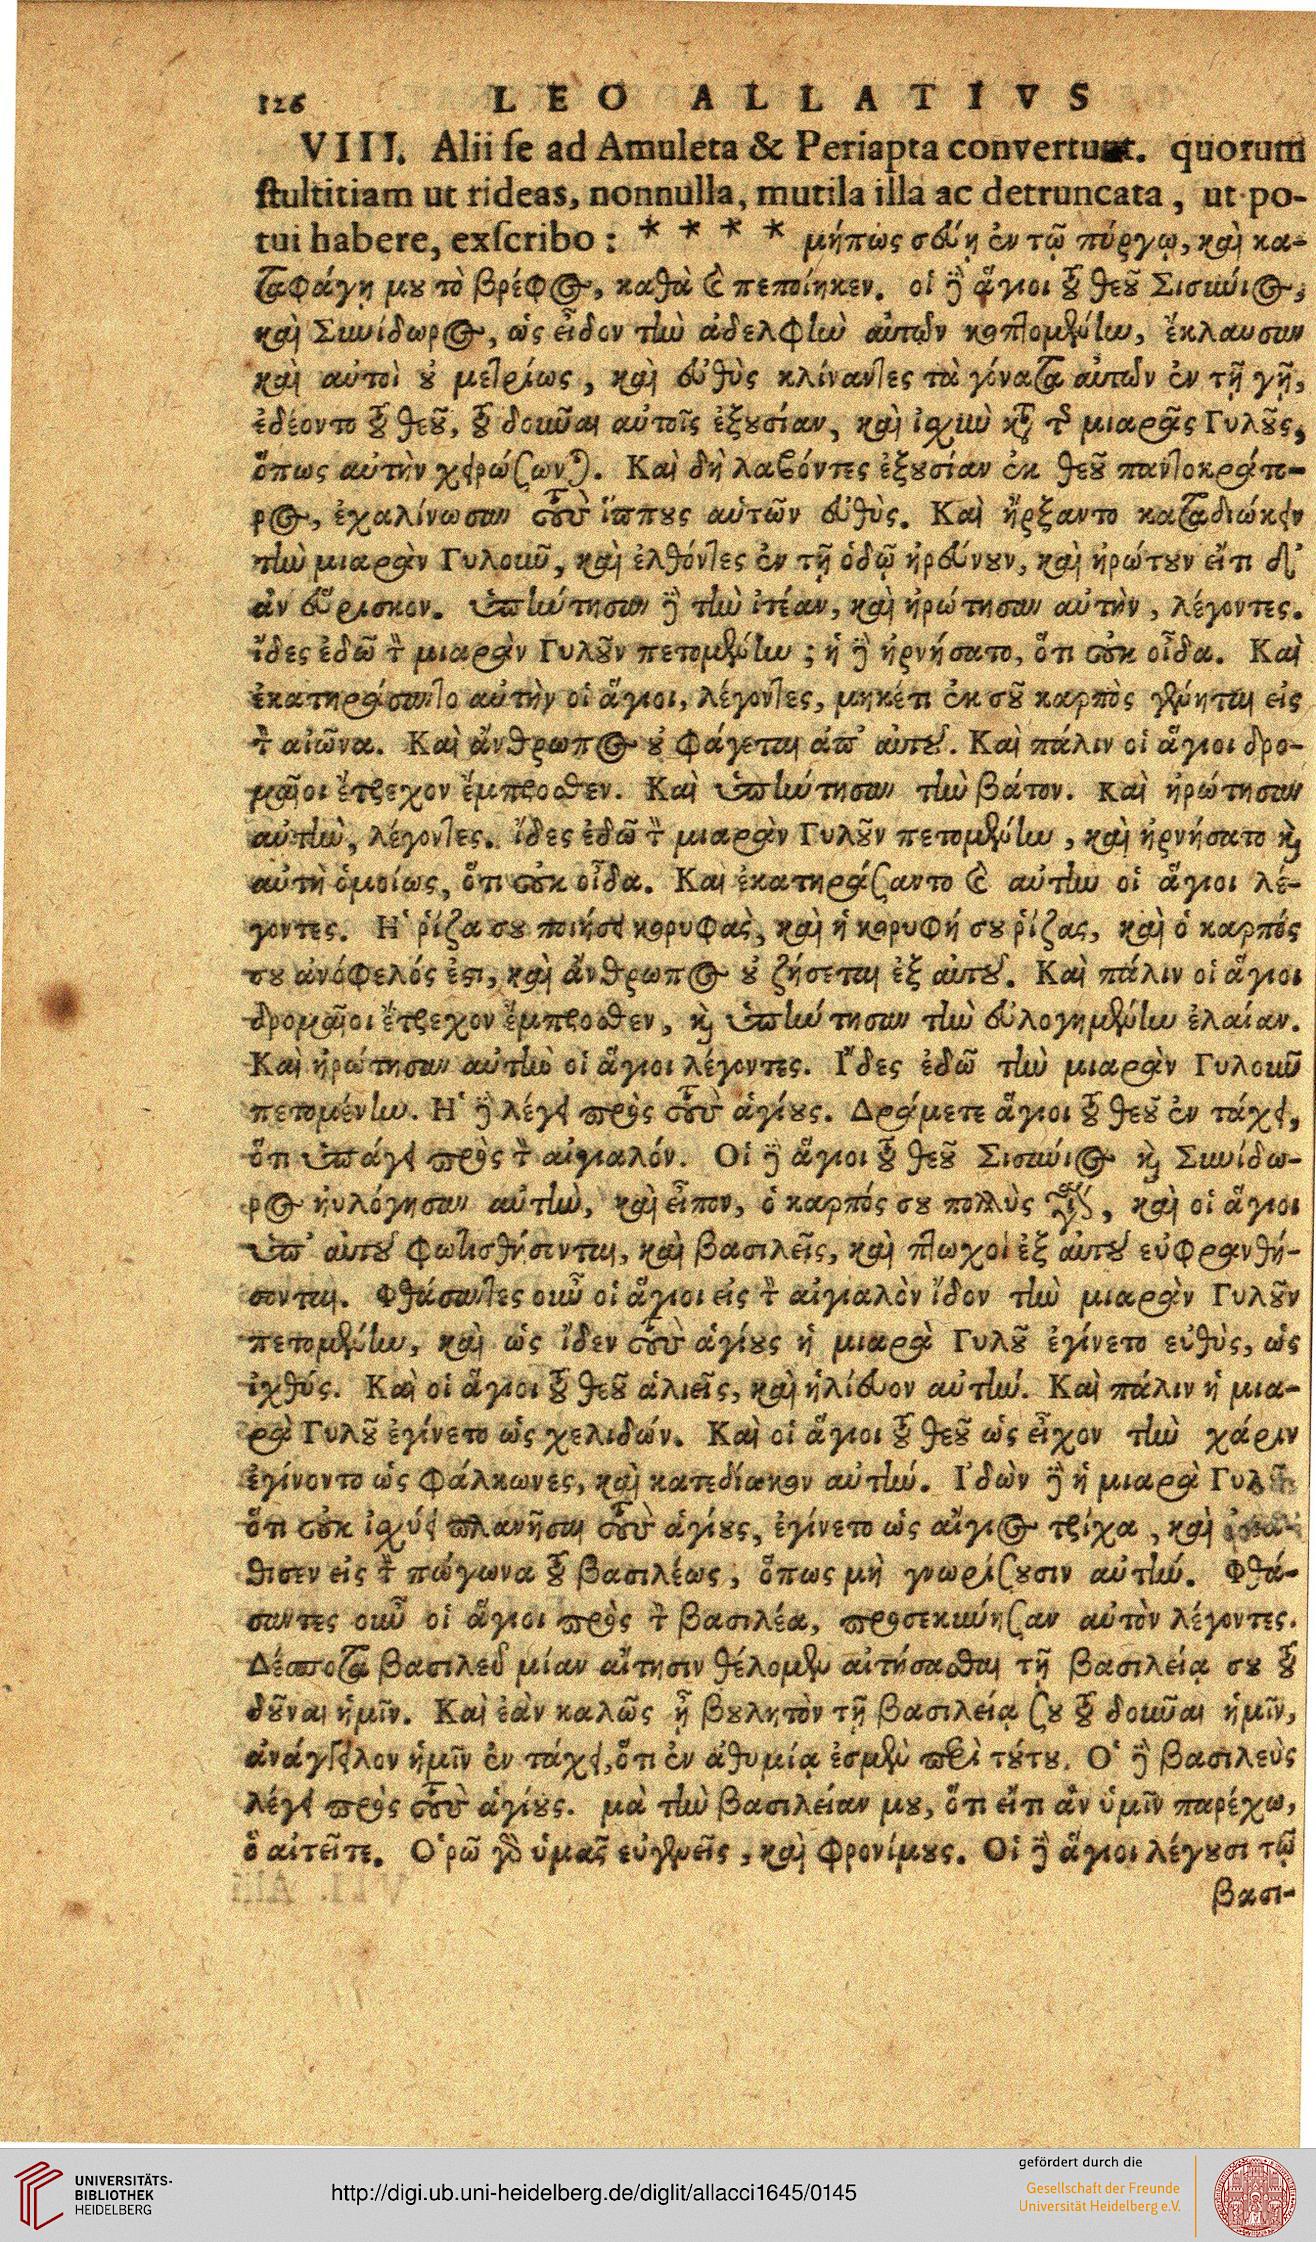 126 LEO ALLATIVS
VIII. Alii se ad Amuleta & Periapta convertunt. quorum
stultitiam ut rideas, nonnulla, mutila illa ac detruncata, ut po-
tui habere, exscribo: * * * * μήπως εὕρῃ ἐν τῷ πύργῳ, καὶ κα-
ταφάγῃ μου τὸ βρέφος, καθὰ καὶ πεποίηκεν. οἱ δὲ ἅγιοι τοῦ θεοῦ Σισίνιος,
καὶ Συνίδωρος, ὡς εἶδον τὴν ἀδελφὴν αὐτῶν κοπτομένην, ἔκλαυσαν
καὶ αὐτοὶ οὐ μετρίως, καὶ εὐθὺς κλίναντες τὰ γόνατα αὐτῶν ἐν τῇ γῇ,
ἐδέοντο τοῦ θεοῦ, τοῦ δοῦναι αὐτοῖς ἐξουσίαν, καὶ ἰσχὺν κατὰ τῆς μιαρᾶς Γυλοῦς,
ὅπως αὐτὴν χειρώσωνται. Καὶ δὴ λαβόντες ἐξουσίαν ἐκ θεοῦ παντοκράτο-
ρος, ἐχαλίνωσαν τοὺς ἵππους αὐτῶν εὐθὺς. Καὶ ἤρξαντο καταδιώκειν
τὴν μιαρὰν Γυλοῦν, καὶ ἐλθόντες ἐν τῇ ὁδῷ ἠρεύνουν, καὶ ἠρώτουν εἴ τι δ'
ἂν εὕρισκον. ὑπήντησαν δὲ τὴν ἰτέαν, καὶ ἠρώτησαν αὐτὴν, λέγοντες.
ἴδες ἐδῶ τὴν μιαρὰν Γυλοῦν πετομένην; ἡ δὲ ἠρνήσατο, ὅτι οὐκ οἶδα. Καὶ
ἐκατηράσαντο αὐτὴν οἱ ἅγιοι, λέγοντες, μηκέτι ἐκ σοῦ καρπὸς γένηται εἰς
τὸν αἰῶνα. Καὶ ἄνθρωπος οὐ φάγεται ἀπ' αὐτοῦ. Καὶ πάλιν οἱ ἅγιοι δρο-
μαῖοι ἔτρεχον ἔμπροσθεν. Καὶ ὑπήντησαν τὴν βάτον. καὶ ἠρώτησαν
αὐτὴν, λέγοντες. ἴδες ἐδῶ τὴν μιαρὰν Γυλοῦν πετομένην, καὶ ἠρνήσατο καὶ
αὐτὴ ὁμοίως, ὅτι οὐκ οἶδα. Καὶ ἐκατηράσαντο καὶ αὐτὴν οἱ ἅγιοι λέ-
γοντες. Ἡ ῥίζα σου ποιήσει κορυφὰς, καὶ ἡ κορυφή σου ῥίζας, καὶ ὁ καρπός
σου ἀνόφελός ἐστι, καὶ ἄνθρωπος οὐ ζήσεται ἐξ αὐτοῦ. Καὶ πάλιν οἱ ἅγιοι
δρομαῖοι ἔτρεχον ἔμπροσθεν, καὶ ὑπήντησαν τὴν εὐλογημένην ἐλαίαν.
Καὶ ἠρώτησαν αὐτὴν οἱ ἅγιοι λέγοντες. Ἴδες ἐδῶ τὴν μιαρὰν Γυλοῦν
πετομένην. Ἡ δὲ λέγει πρὸς τοὺς ἁγίους. Δράμετε ἅγιοι τοῦ θεοῦ ἐν τάχει,
ὅτι ὑπάγει πρὸς τὸν αἰγιαλόν. Οἱ δὲ ἅγιοι τοῦ θεοῦ Σισίνιος καὶ Συνίδω-
ρος ηὐλόγησαν αὐτὴν, καὶ εἶπον, ὁ καρπός σου πολλὺς, καὶ οἱ ἅγιοι
ὑπ' αὐτοῦ φωτισθήσονται, καὶ βασιλεῖς, καὶ πτωχοὶ ἐξ αὐτοῦ εὐφρανθή-
σονται. Φθάσαντες οὖν οἱ ἅγιοι εἰς τὸν αἰγιαλὸν ἴδον τὴν μιαρὰν Γυλοῦν
πετομένην, καὶ ὡς ἴδεν τοὺς ἁγίους ἡ μιαρὰ Γυλοῦ ἐγίνετο εὐθὺς, ὡς
ἰχθύς. Καὶ οἱ ἅγιοι τοῦ θεοῦ ἁλιεῖς, καὶ ἡλίευον αὐτήν. Καὶ πάλιν ἡ μια-
ρὰ Γυλοῦ ἐγίνετο ὡς χελιδών. Καὶ οἱ ἅγιοι τοῦ θεοῦ ὡς εἶχον τὴν χάριν
ἐγίνοντο ὡς φάλκωνες, καὶ κατεδίωκον αὐτήν. Ἰδὼν δὲ ἡ μιαρὰ Γυλοῦ
ὅτι οὐκ ἰσχύει πλανῆσαι τοὺς ἁγίους, ἐγίνετο ὡς αἴγιος τρίχα, καὶ ἐκά-
θισεν εἰς τὸν πώγωνα τοῦ βασιλέως, ὅπως μὴ γνωρίσουσιν αὐτήν. Φθά-
σαντες οὖν οἱ ἅγιοι πρὸς τὸν βασιλέα, προσεκύνησαν αὐτὸν λέγοντες.
Δέσποτα βασιλεῦ μίαν αἴτησιν θέλομεν αἰτήσασθαι τῇ βασιλείᾳ σου τοῦ
δοῦναι ἡμῖν. Καὶ ἐὰν καλῶς ᾖ βουλητὸν τῇ βασιλείᾳ σου τοῦ δοῦναι ἡμῖν,
ἀνάγγειλον ἡμῖν ἐν τάχει, ὅτι ἐν ἀθυμίᾳ ἐσμὲν περὶ τούτου. Ὁ δὲ βασιλεὺς
λέγει πρὸς τοὺς ἁγίους. μὰ τὴν βασιλείαν μου, ὅτι εἴ τι ἂν ὑμῖν παρέχω,
ὃ αἰτεῖτε. Ὁρῶ γὰρ ὑμᾶς εὐγενεῖς, καὶ φρονίμους. Οἱ δὲ ἅγιοι λέγουσι τῷ
βασι-
UNIVERSITÄTS-
BIBLIOTHEK
HEIDELBERG
http://digi.ub.uni-heidelberg.de/diglit/allacci1645/0145
gefördert durch die
Gesellschaft der Freunde
Universität Heidelberg e.V.